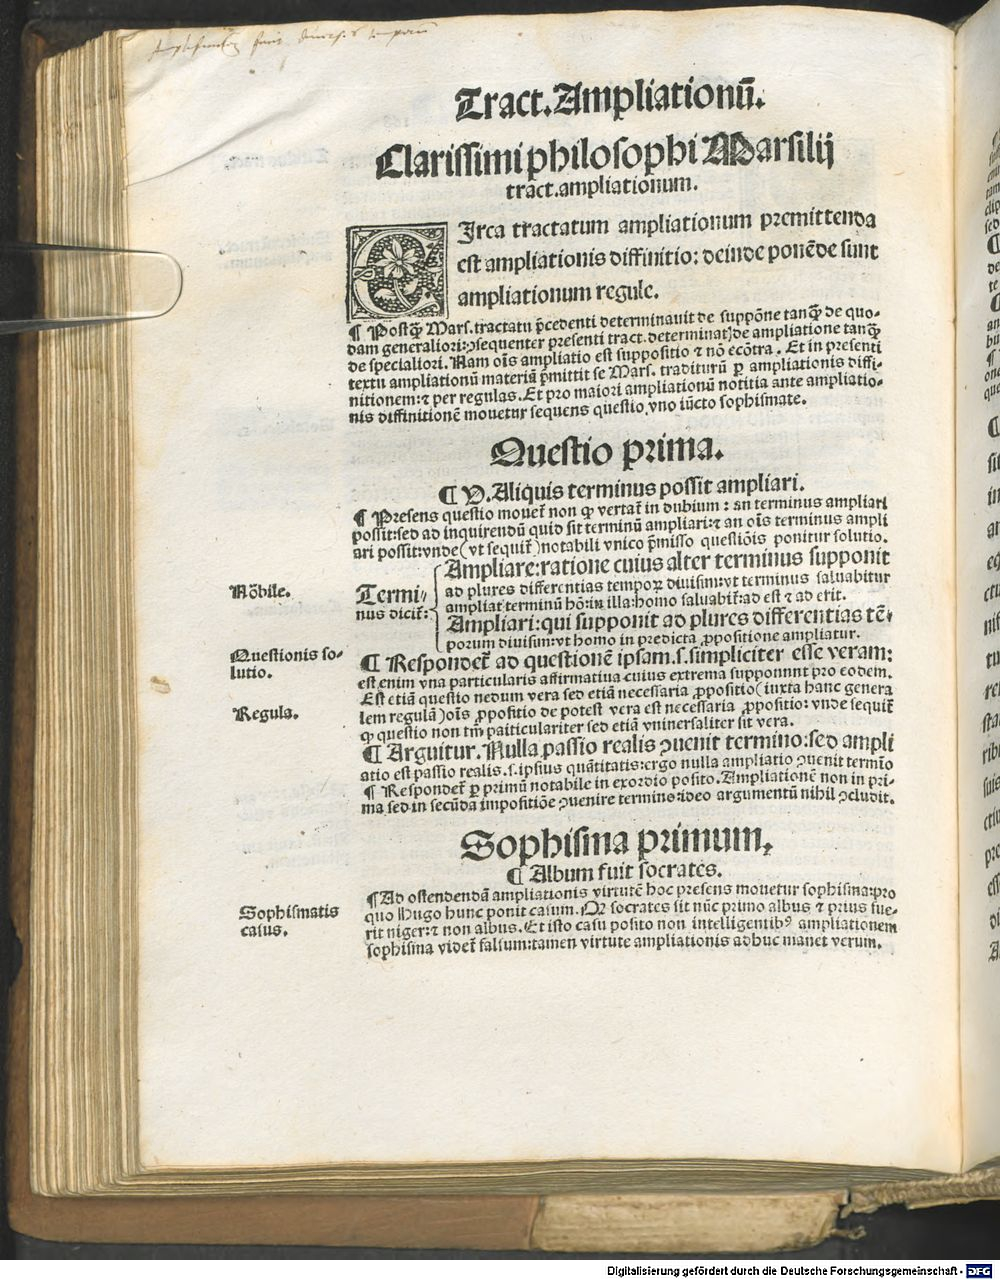 Tract. Ampliationũ.
Clarissimi philosophi Marsilij
tract. ampliationum.
CIrca tractatum ampliationum premittenda
est ampliationis diffinitio: deinde ponẽde sunt
ampliationum regule.
¶ Postꝙ̃ Mars. tractatu p̃cedenti determinauit de suppõne tanꝙ̃ de quo-
dam generaliori: ꝯsequenter presenti tract. determinat de ampliatione tanꝙ̃
de specialiori. Nam oĩs ampliatio est suppositio ⁊ nõ ecõtra. Et in presenti
textu ampliationũ materiã p̃mittit se Mars. traditurũ ꝑ ampliationis diffi-
nitionem: ⁊ per regulas. Et pro maiori ampliationũ notitia ante ampliatio-
nis diffinitionẽ mouetur sequens questio, vno iũcto sophismate.
Questio prima.
¶ V. Aliquis terminus possit ampliari.
¶ Presens questio mouet̃ non ꝙ vertat̃ in dubium: an terminus ampliari
possit: sed ad inquirendũ quid sit terminũ ampliari: ⁊ an oĩs terminus ampli
ari possit: vnde (vt sequit̃) notabili vnico p̃misso questiõis ponitur solutio.
Nõbile.
Termi-
nus dicit̃:
Ampliare: ratione cuius alter terminus supponit
ad plures differentias tempoꝝ diuisim: vt terminus saluabitur
ampliat terminũ hõ: in illa: homo saluabit̃: ad est ⁊ ad erit.
Ampliari: qui supponit ad plures differentias tẽ-
porum diuisim: vt homo in predicta ꝓpositione ampliatur.
Questionis so-
lutio.
¶ Respondet̃ ad questionẽ ipsam. s. simpliciter esse veram:
est enim vna particularis affirmatiua cuius extrema supponunt pro eodem.
Est etiã questio nedum vera sed etiã necessaria ꝓpositio (iuxta hanc genera
Regula.
lem regulã) oĩs ꝓpositio de potest vera est necessaria ꝓpositio: vnde sequit̃
ꝙ questio non tm̃ particulariter sed etiã vniuersaliter sit vera.
¶ Arguitur. Nulla passio realis ꝯuenit termino: sed ampli
atio est passio realis. s. ipsius quãtitatis: ergo nulla ampliatio ꝯuenit termĩo
¶ Respondet̃ ꝑ primũ notabile in exordio posito. Ampliationẽ non in pri-
ma sed in secũda impositiõe ꝯuenire termino: ideo argumentũ nihil ꝯcludit.
Sophisma primum,
¶ Album fuit socrates.
¶ Ad ostendendã ampliationis virtutẽ hoc presens mouetur sophisma: pro
Sophismatis
casus.
quo Hugo hunc ponit casum. Qꝫ socrates sit nũc primo albus ⁊ prius fue-
rit niger: ⁊ non albus. Et isto casu posito non intelligentibꝰ ampliationem
sophisma videt̃ falsum: tamen virtute ampliationis adhuc manet verum.
Digitalisierung gefördert durch die Deutsche Forschungsgemeinschaft - DFG